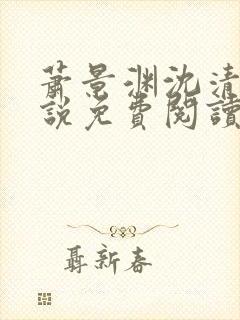 蕭景渊沈清
說免費閱讀
聶新春